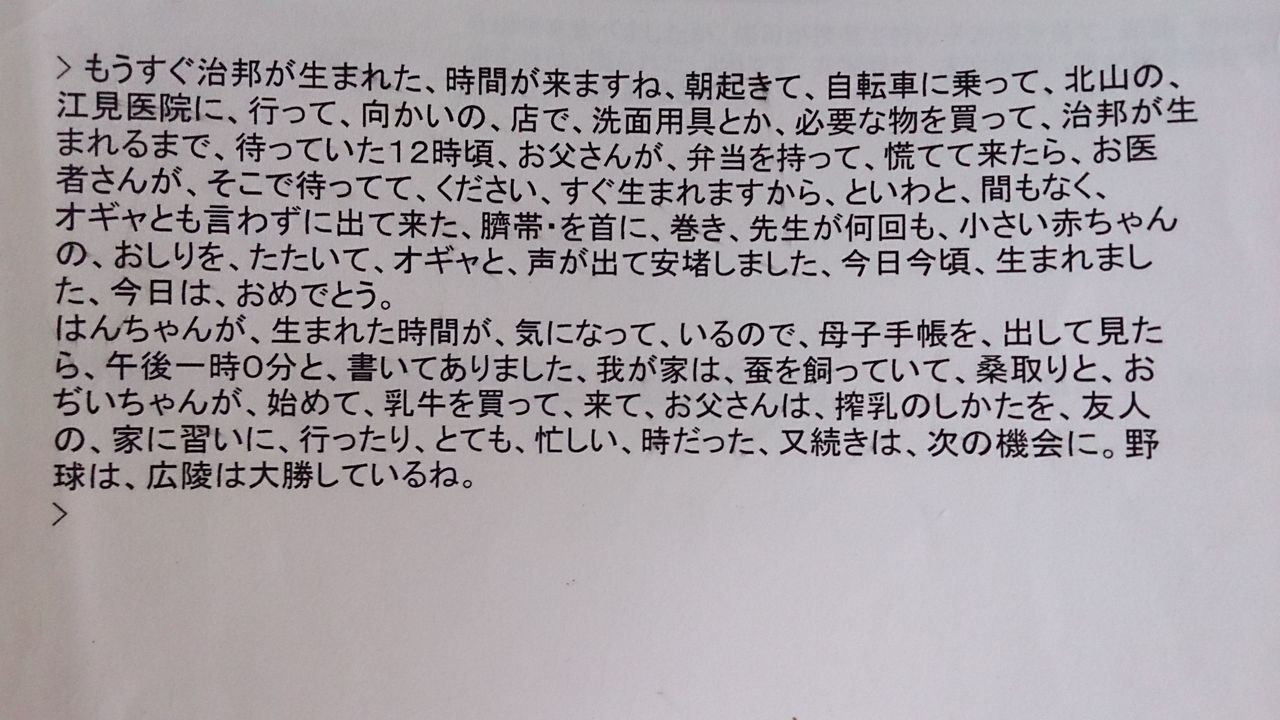 > もうすぐ治邦が生まれた、時間が来ますね、朝起きて、自転車に乗って、北山の、
江見医院に、行って、向かいの、店で、洗面用具とか、必要な物を買って、治邦が生
まれるまで、待っていた12時頃、お父さんが、弁当を持って、慌てて来たら、お医
者さんが、そこで待ってて、ください、すぐ生まれますから、といわと、間もなく、
オギャとも言わずに出て来た、臍帯・を首に、巻き、先生が何回も、小さい赤ちゃん
の、おしりを、たたいて、オギャと、声が出て安堵しました、今日今頃、生まれまし
た、今日は、おめでとう。
はんちゃんが、生まれた時間が、気になって、いるので、母子手帳を、出して見た
ら、午後一時0分と、書いてありました、我が家は、蚕を飼っていて、桑取りと、お
ぢいちゃんが、始めて、乳牛を買って、来て、お父さんは、搾乳のしかたを、友人
の、家に習いに、行ったり、とても、忙しい、時だった、又続きは、次の機会に。野
球は、広陵は大勝しているね。
>